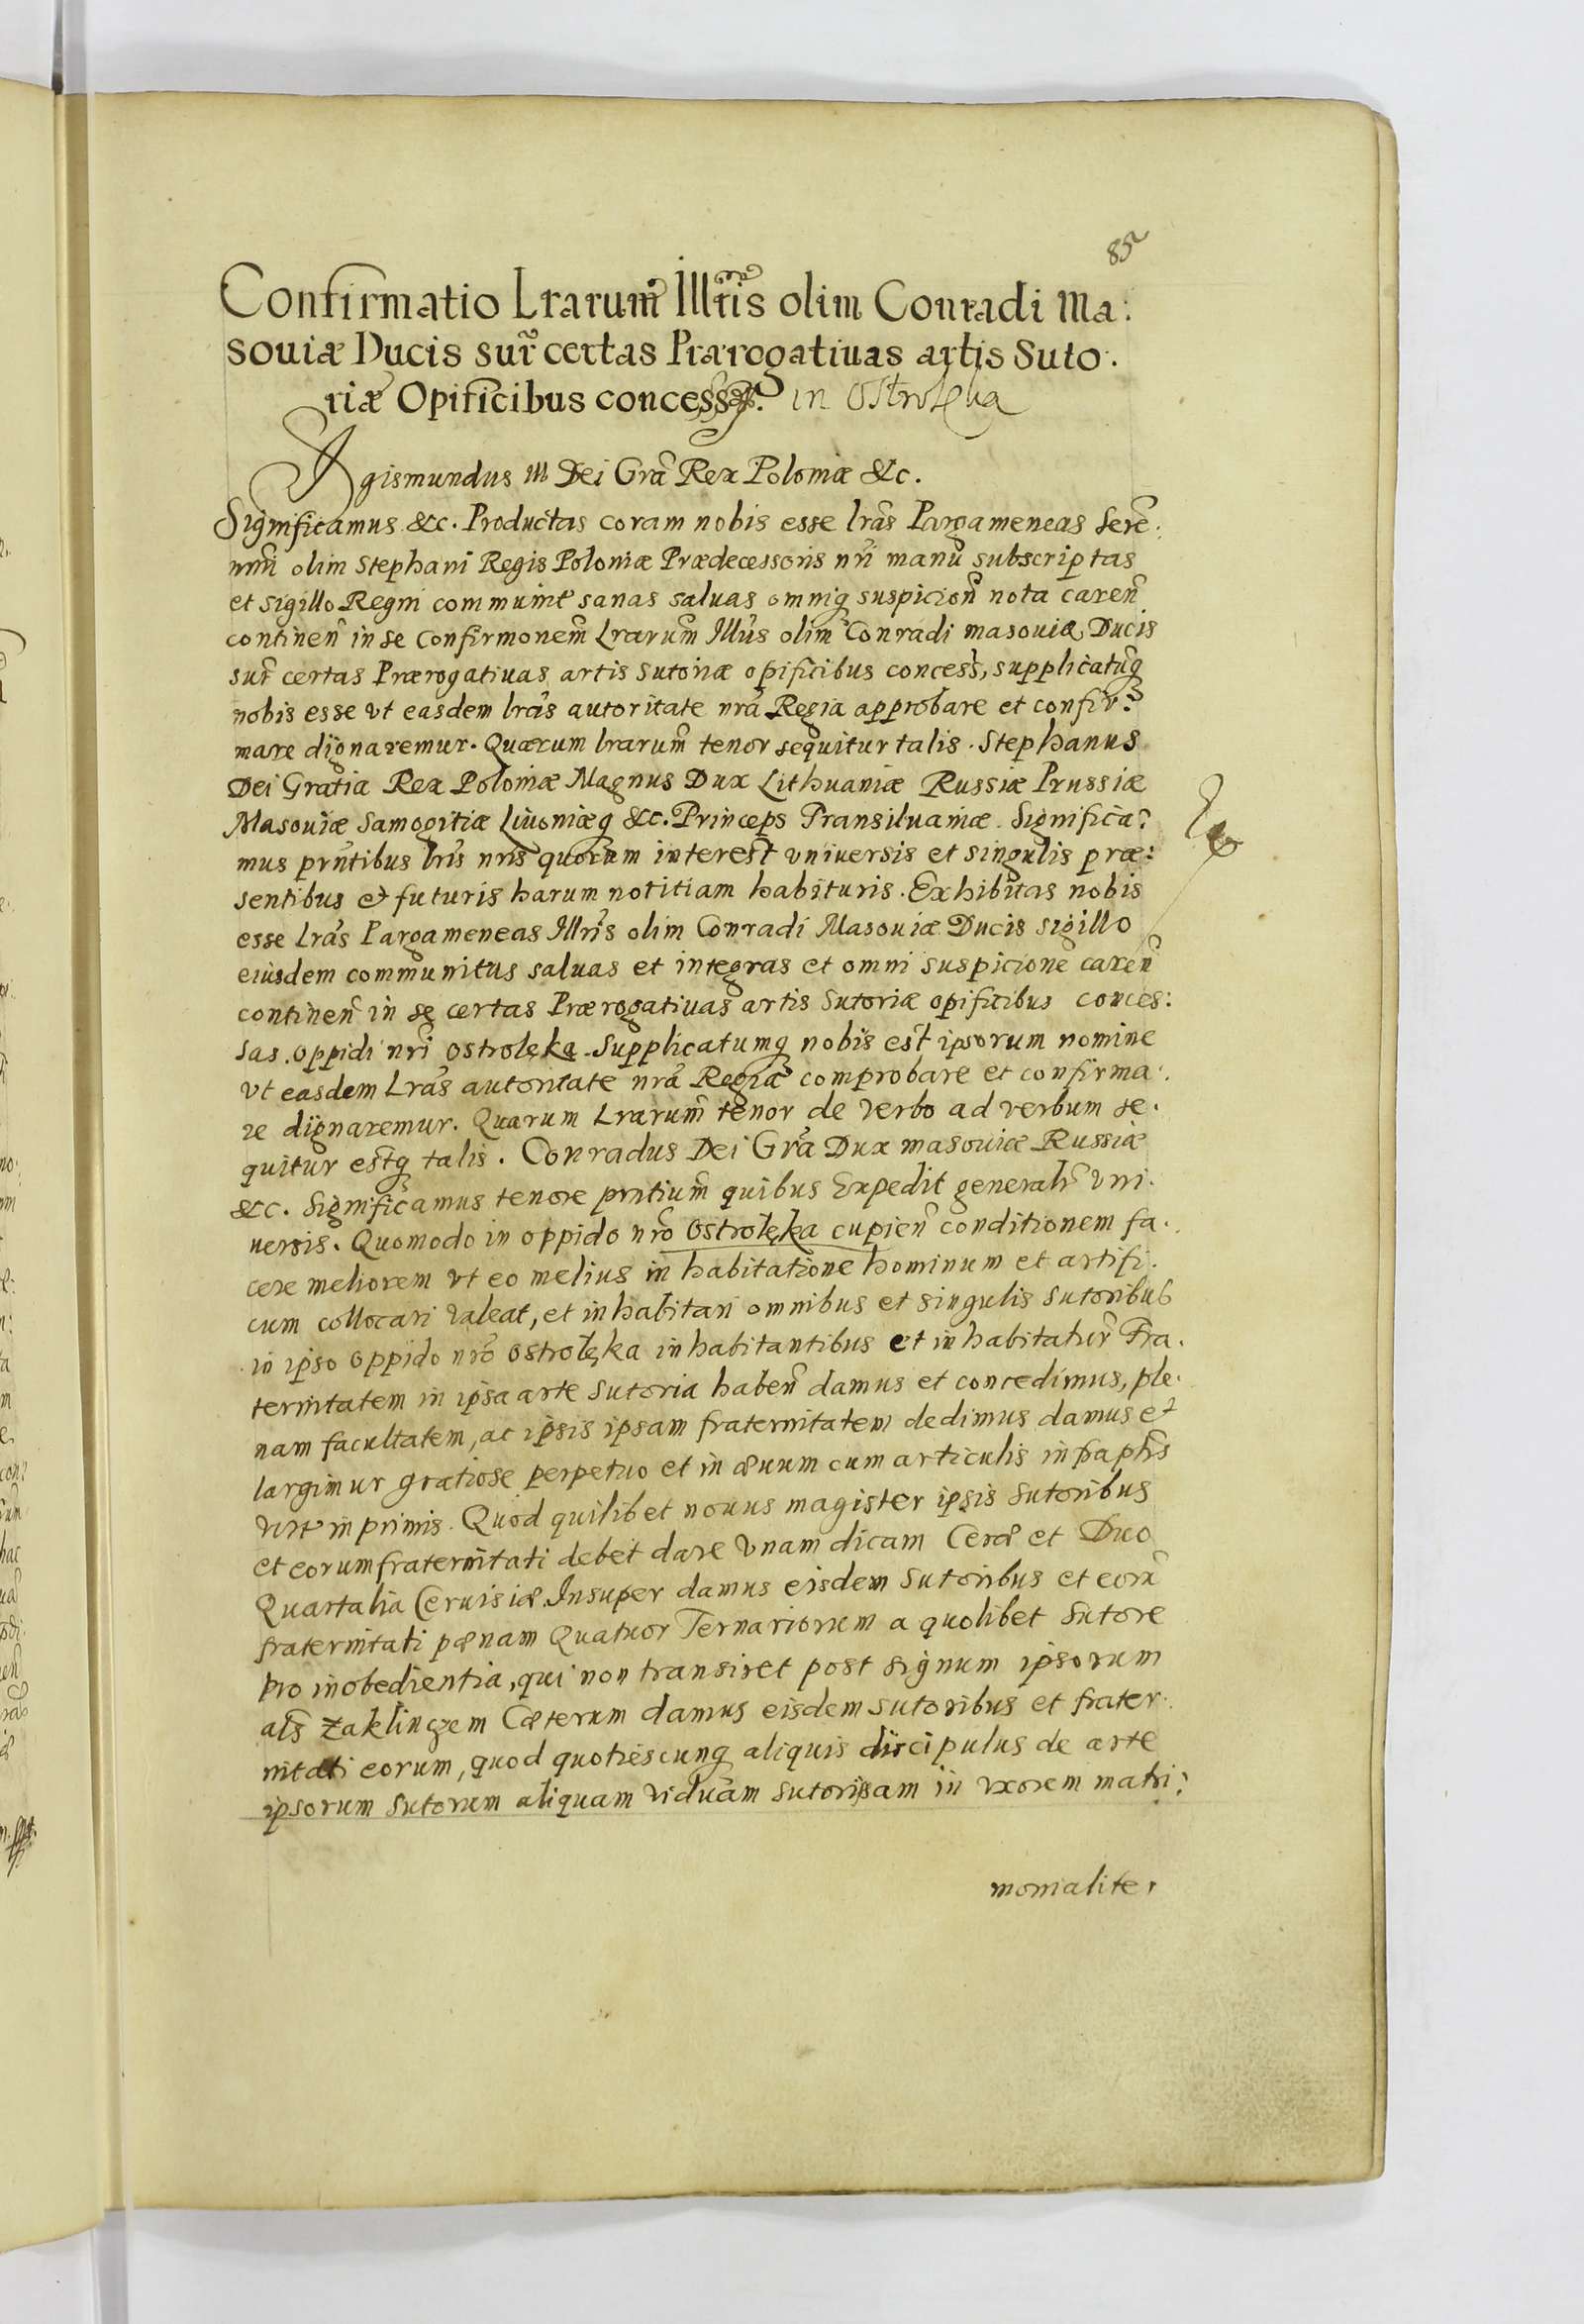 85
Confirmatio Lrarum̃ Illr̃is olim Conradi Ma:
souiæ Ducis sur̃ certas Prærogatiuas artis Suto:
riæ Opificibus concess. in Ostrolęka
Sigismundus III Dei Grã Rex Poloniæ &c.
Significamus &c. Productas coram nobis esse lrãs Pargameneas Serẽ:
nim̃ olim Stephani Regis Poloniæ Prædecessoris nr̃i manũ subscriptas
et sigillo Regni communit̃ sanas saluas omniq suspicioñ nota careñ
contineñ in se Confirmonem̃ Lrarum̃ Illũs olim Conradi masouiæ Ducis
sur̃ certas Prærogatiuas artis Sutoriæ opificibus concess̃, supplicatum̃q
nobis esse vt easdem lrãs autoritate nrã Regia approbare et confir:
mare dignaremur. Quarum lrarum̃ tenor sequitur talis. Stephanus
Dei Gratia Rex Poloniæ Magnus Dux Lithuaniæ Russiæ Prussiæ
Masouiæ Samogitiæ Liuoniæq &c. Princeps Transiluaniæ. Significa:
mus prñtibus lrĩs nrĩs quorum interest vniuersis et singulis præ:
sentibus et futuris harum notitiam habituris. Exhibitas nobis
esse Lrãs Pargameneas Illrĩs olim Conradi Masouiæ Ducis sigillo
eiusdem communitas saluas et integras et omni suspicione careñ
contineñ in se certas Prærogatiuas artis Sutoriæ opificibus conces:
sas. oppidi nrĩ Ostrolęka. Supplicatumq nobis est ipsorum nomine
vt easdem Lrãs autoritate nrã Regiæ comprobare et confirma:
re dignaremur. Quarum Lrarum̃ tenor de verbo ad verbum se.
quitur estq talis. Conradus Dei Grã Dux masouiæ Russiæ
&c. Significamus tenore prñtium̃ quibus Expedit generalr̃ vni.
uersis. Quomodo in oppido nrõ Ostrolęka cupieñ conditionem fa.
cere meliorem vt eo melius in habitatione hominum et artifi.
cum collocari valeat, et inhabitari omnibus et singulis Sutoribus
in ipso oppido nrõ Ostrolęka inhabitantibus et inhabitatur̃ Fra.
ternitatem in ipsa arte Sutoria habeñ damus et concedimus, ple.
nam facultatem, ac ipsis ipsam fraternitatem dedimus damus et
largimur gratiose perpetuo et in æuum cum articulis infraptĩs
vizt̃ in primis. Quod quilibet nouus magister ipsis Sutoribus
et eorum fraternitati debet dare vnam dicam Ceræ et Duo
Quartalia Ceruisiæ. Insuper damus eisdem Sutoribus et eorũ
fraternitati pænam Quatuor Ternariorum a quolibet Sutore
pro inobedientia, qui non transiret post signum ipsorum
als̃ zaklinczem Cæterum damus eisdem sutoribus et frater.
nitati eorum, quod quotiescunq aliquis discipulus de arte
ipsorum Sutorum aliquam viduam sutorissam in vxorem matri:
monialiter